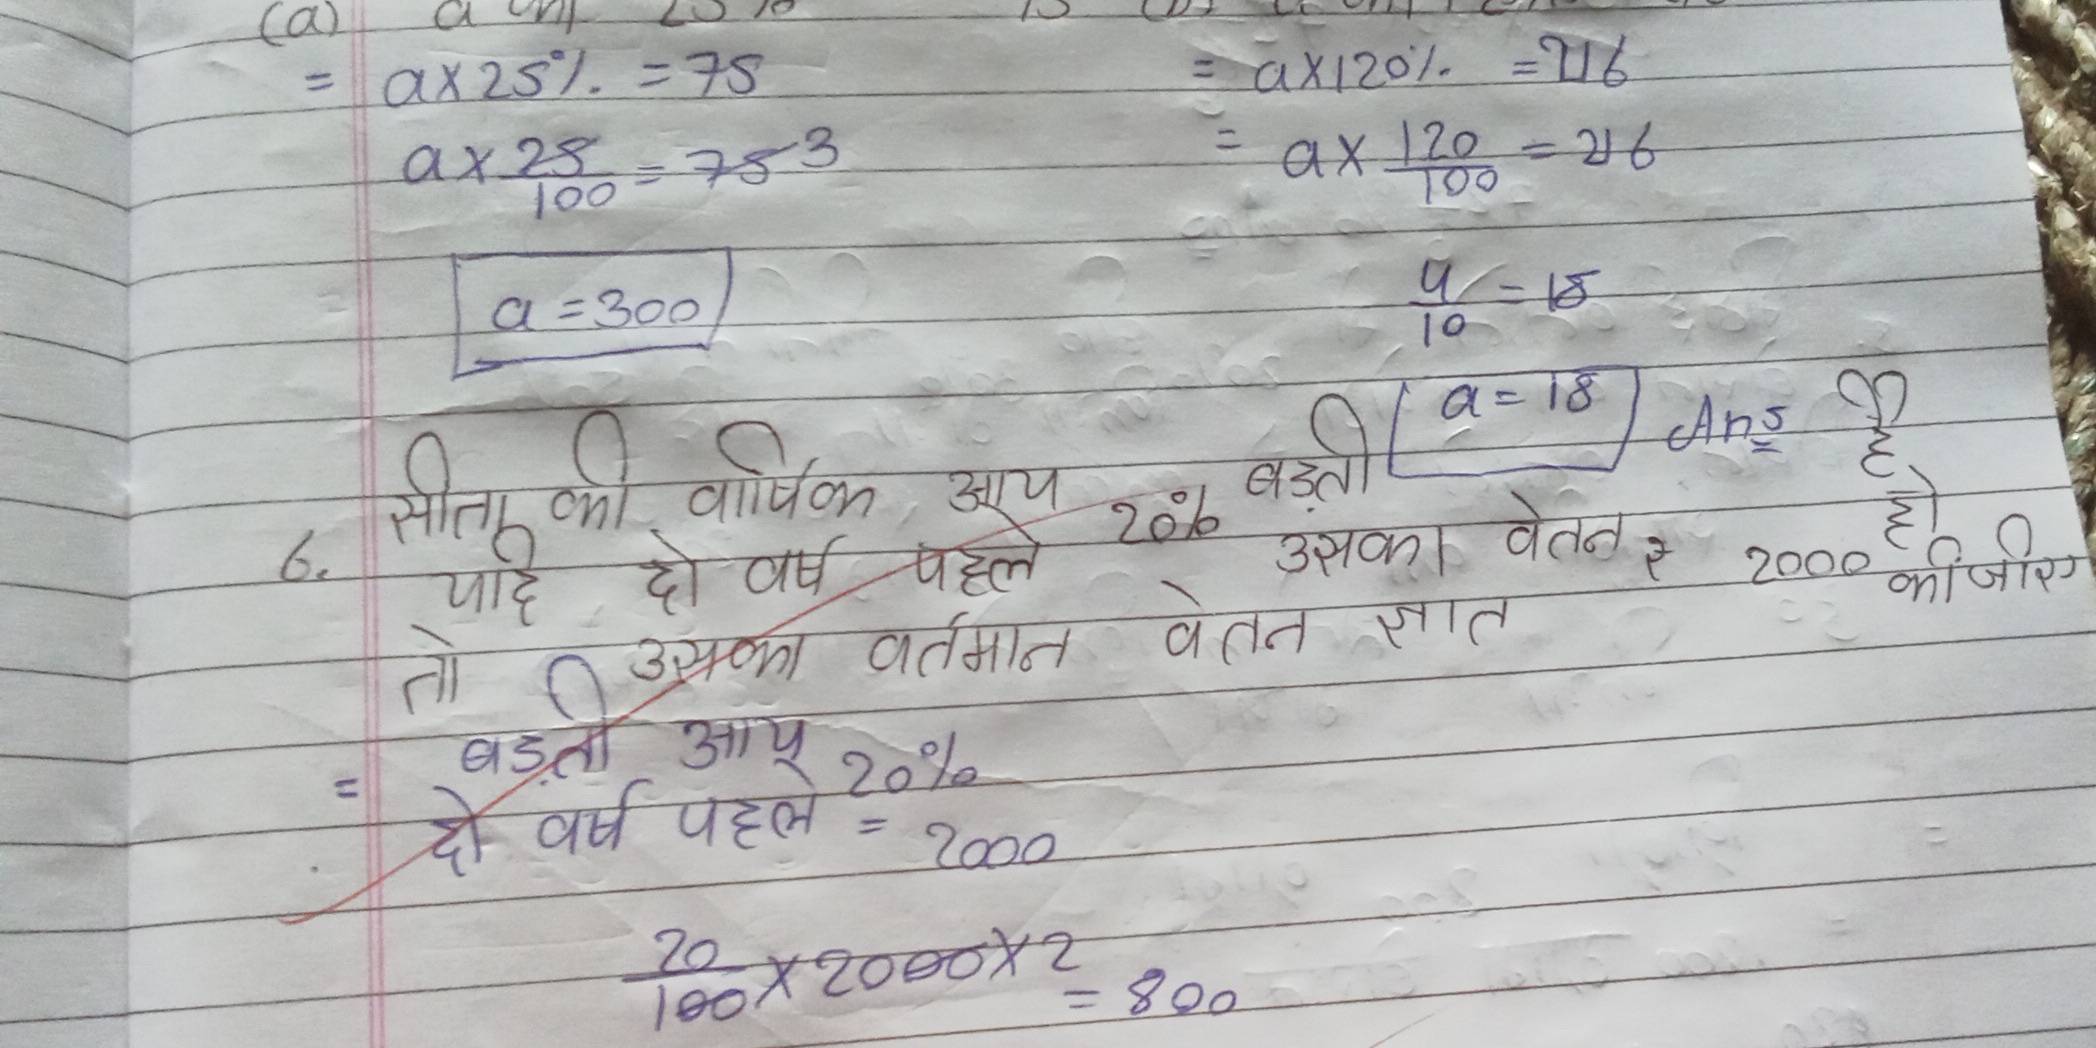 (a) a का 25%
= a×25% = 75
a × 25/100 = 75 3
a = 300
= a×120% = 216
= a × 120/100 = 216
9/10 = 18
a = 18 Ans
6. सीता की वार्षिक आय 20% बड़ती है
यदि दो वर्ष पहले उसका वेतन ₹ 2000 हो
तो उसका वर्तमान वेतन ज्ञात कीजीए
= बड़ती आय 20%
दो वर्ष पहले = 2000
20/100 × 2000 × 2 = 800